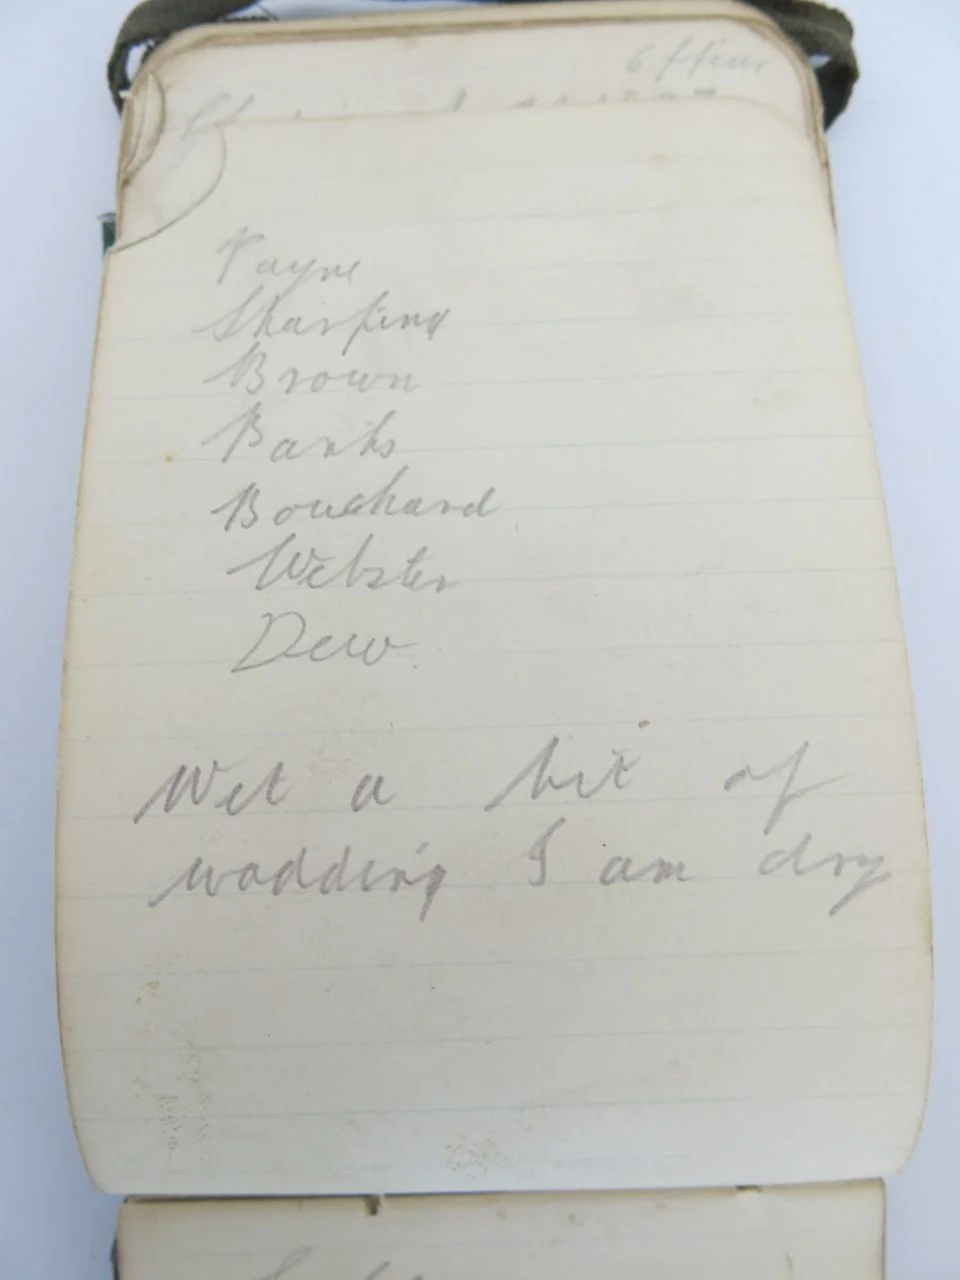 Officer
Payne
Sharping
Brown
Banks
Bouchard
Webster
Dew
Wet a bit of
wadding I am dry